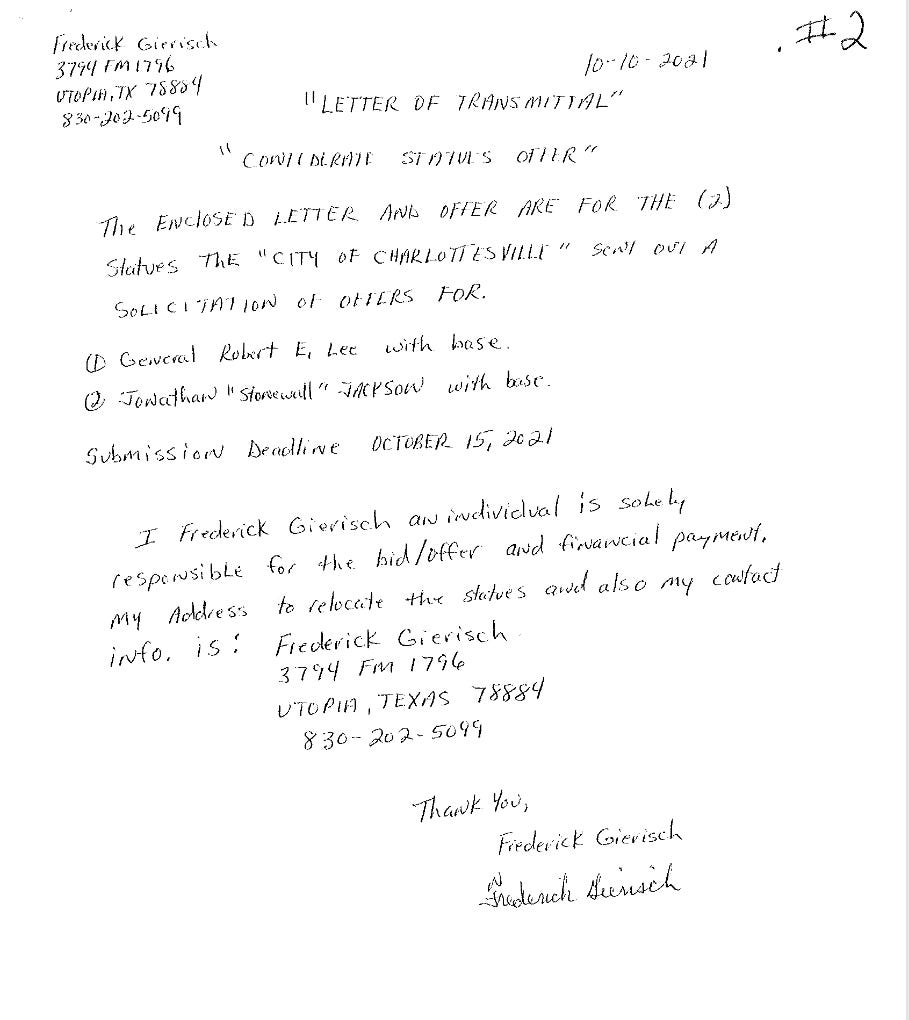 .#2
Frederick Gierisch
3794 FM 1796
UTOPIA, TX 78884
830-202-5099
10-10-2021
"LETTER OF TRANSMITTAL"
"CONFEDERATE STATUES OFFER"
The ENCLOSED LETTER AND OFFER ARE FOR THE (2)
Statues THE "CITY OF CHARLOTTESVILLE" SENT OUT A
SOLICITATION OF OFFERS FOR.
① General Robert E. Lee with base.
② Jonathan "Stonewall" JACKSON with base.
Submission Deadline OCTOBER 15, 2021
I Frederick Gierisch an individual is solely
responsible for the bid/offer and financial payment.
My Address to relocate the statues and also my contact
info. is: Frederick Gierisch
3794 FM 1796
UTOPIA, TEXAS 78884
830-202-5099
Thank You,
Frederick Gierisch
Frederick Gierisch